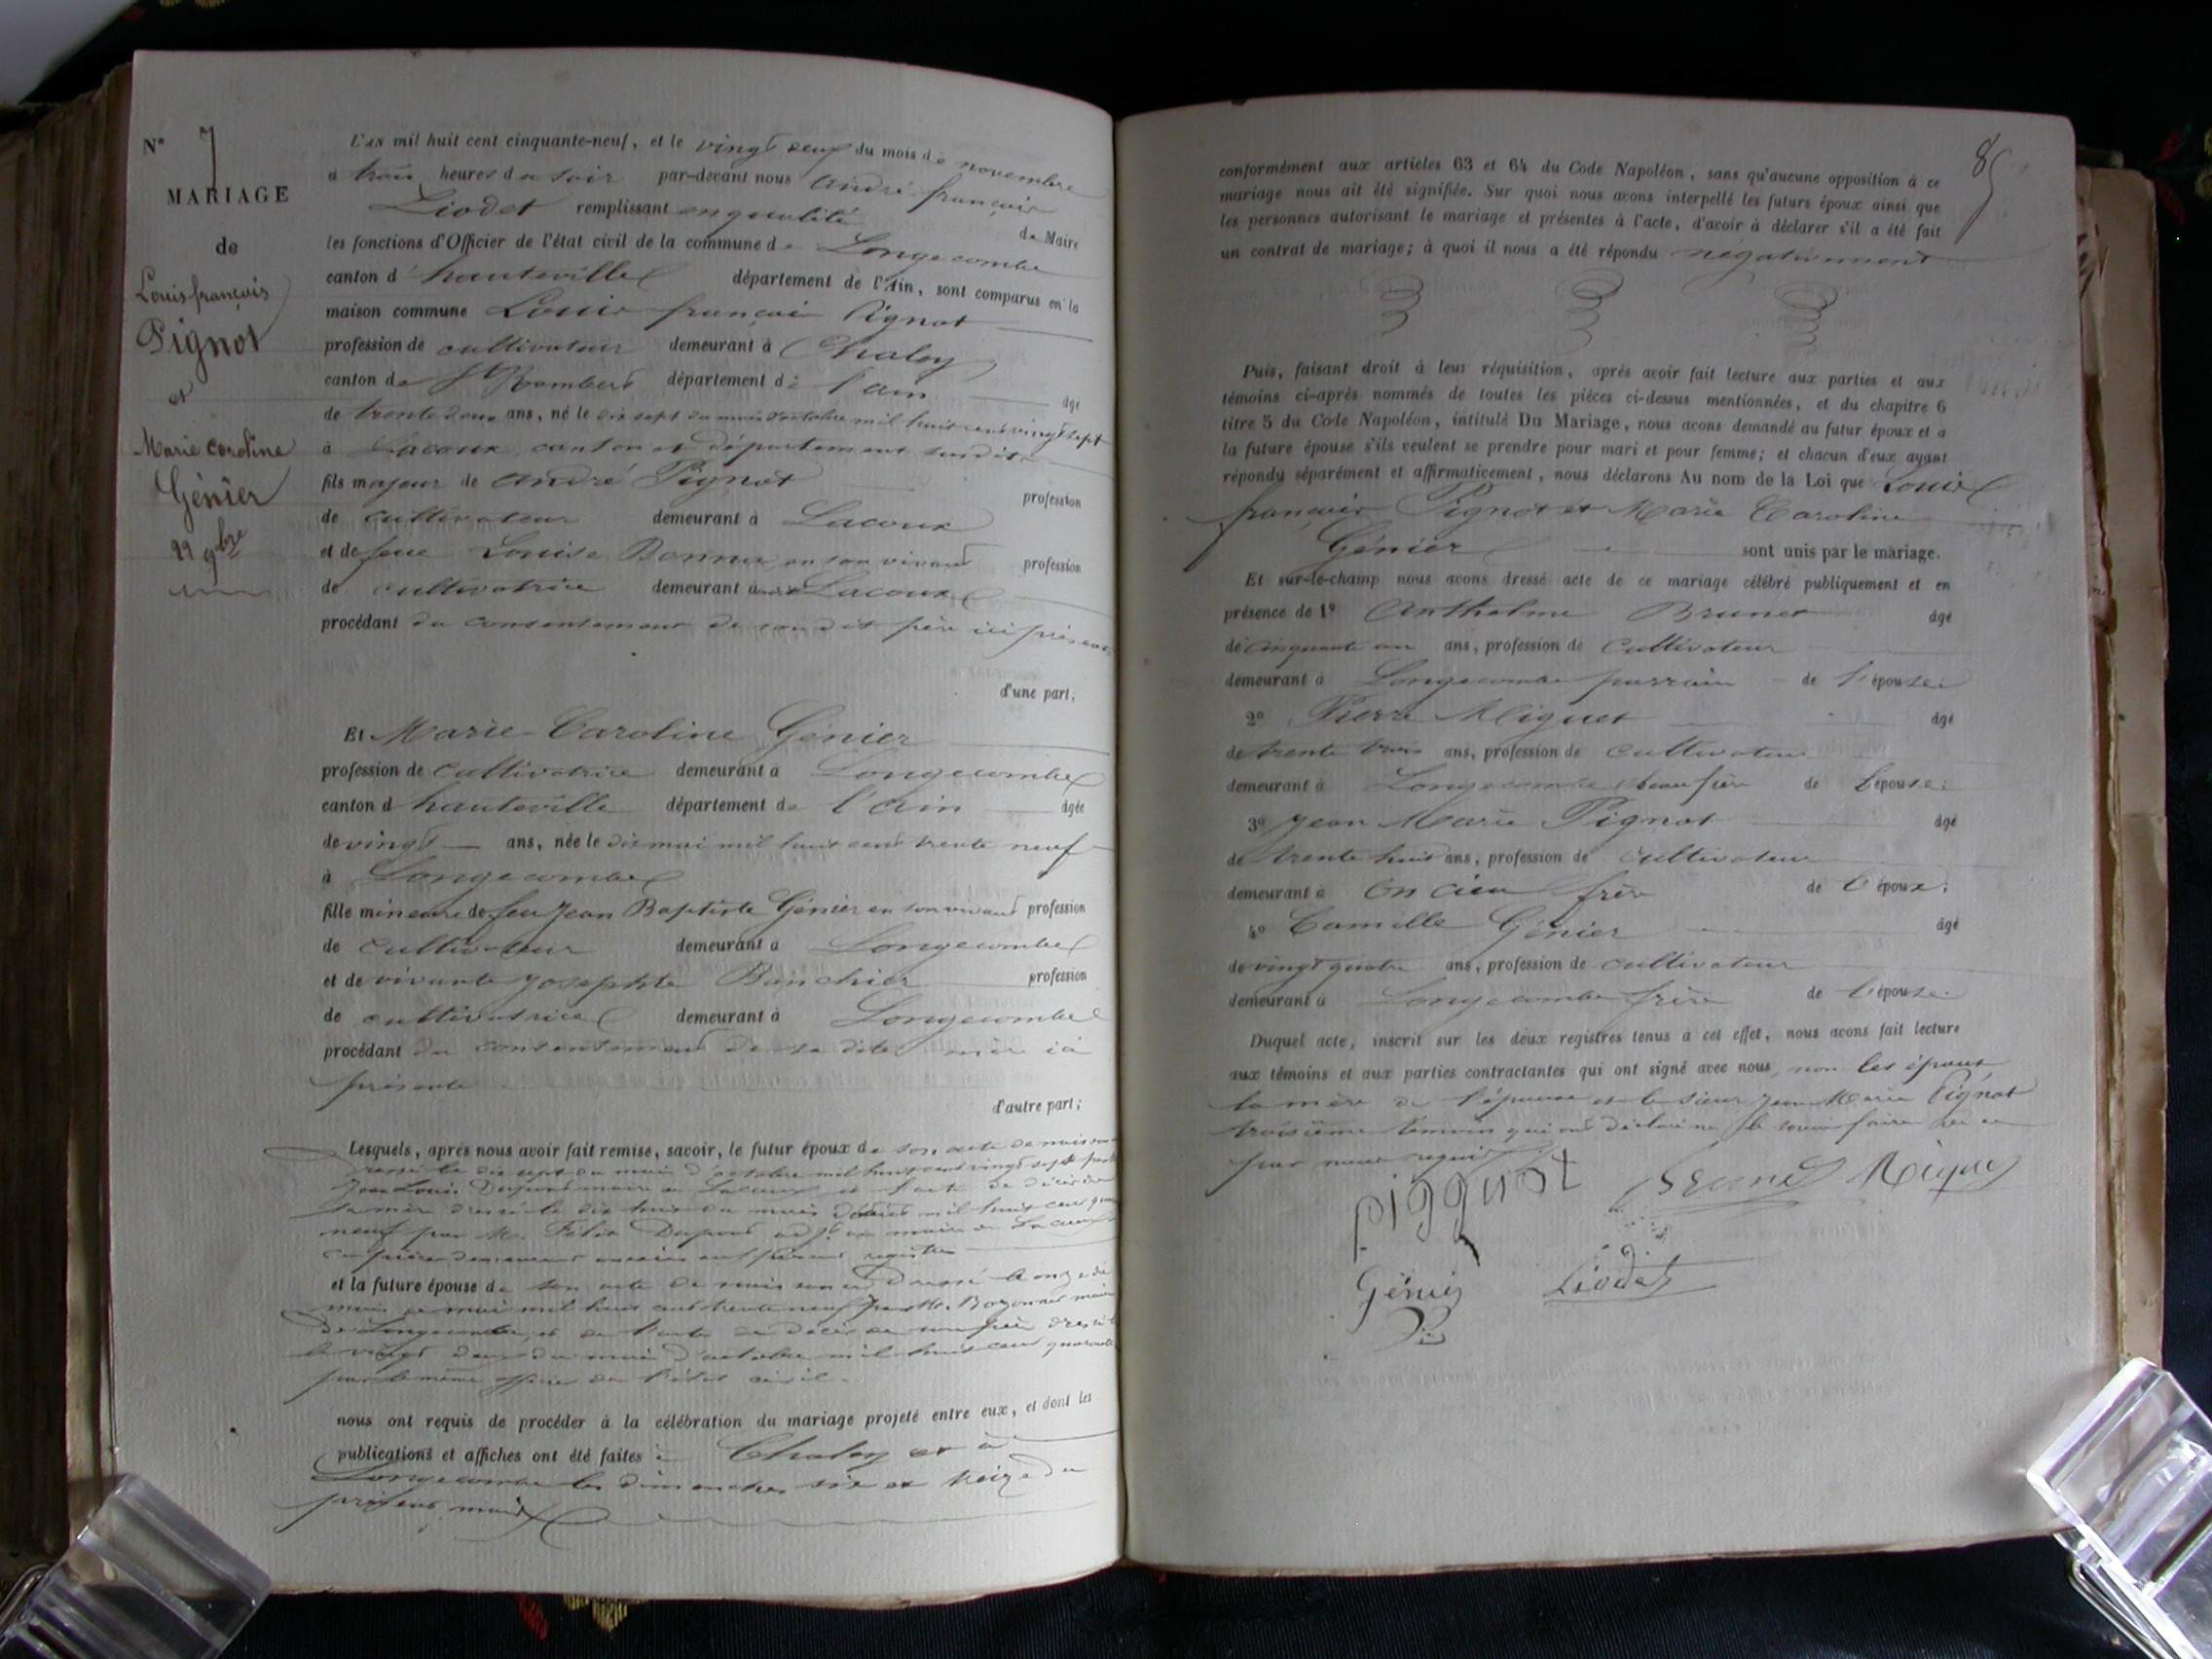 N° 7
MARIAGE
de
Louis françois
Pignot
et
Marie Caroline
Génier
9bre
L'an mil huit cent cinquante-neuf, et le vingt neuf du mois de novembre
à trois heures du soir par-devant nous André françois
Liodet remplissant en qualité de Maire
les fonctions d'Officier de l'état civil de la commune de Longecombe
canton d'hauteville département de l'Ain, sont comparus en la
maison commune Louis françois Pignot
profession de cultivateur demeurant à Chaley
canton de St Rambert département de l'ain âgé
de trente deux ans, né le dix sept du mois d'octobre mil huit cent vingt sept
à Lacoux canton et département susdits
fils majeur de André Pignot profession
de cultivateur demeurant à Lacoux
et de feue Louise en son vivant profession
de cultivatrice demeurant à Lacoux
procédant du consentement de son dit père ici présent
d'une part,
Et Marie Caroline Génier
profession de cultivatrice demeurant à Longecombe
canton d'hauteville département de l'ain âgée
de vingt ans, née le dix mai mil huit cent trente neuf
à Longecombe
fille mineure de feu Jean Baptiste Génier en son vivant profession
de cultivateur demeurant à Longecombe
et de vivante Josephte profession
de cultivatrice demeurant à Longecombe
procédant du consentement de sa dite mère ici
présente
d'autre part;
Lesquels, après nous avoir fait remise, savoir, le futur époux de son acte de naissance
dressé le dix sept du mois d'octobre mil huit cent vingt sept par
Jean Louis Dupont maire de Lacoux et l'acte de décès de
sa mère dressé le dix huit du mois mil huit cent
neuf par Mr Félix Dupont adjt au maire de Lacoux
registres
et la future épouse de son acte de naissance dressé le onze du
mois de mai mil huit cent trente neuf par Mr. maire
de Longecombe, et de l'acte de décès de son père dressé
le vingt deux du mois d'octobre mil huit cent quarante
par le même officier de l'état civil.
nous ont requis de procéder à la célébration du mariage projeté entre eux, et dont les
publications et affiches ont été faites à Chaley et à
Longecombe les dimanches six et treize du
présent mois
85
conformément aux articles 63 et 64 du Code Napoléon, sans qu'aucune opposition à ce
mariage nous ait été signifiée. Sur quoi nous avons interpellé les futurs époux ainsi que
les personnes autorisant le mariage et présentes à l'acte, d'avoir à déclarer s'il a été fait
un contrat de mariage; à quoi il nous a été répondu négativement
Puis, faisant droit à leur réquisition, après avoir fait lecture aux parties et aux
témoins ci-après nommés de toutes les pièces ci-dessus mentionnées, et du chapitre 6
titre 5 du Code Napoléon, intitulé Du Mariage, nous avons demandé au futur époux et à
la future épouse s'ils veulent se prendre pour mari et pour femme; et chacun d'eux ayant
répondu séparément et affirmativement, nous déclarons Au nom de la Loi que Louis
françois Pignot et Marie Caroline
Génier sont unis par le mariage.
Et sur-le-champ nous avons dressé acte de ce mariage célébré publiquement et en
présence de 1° Anthelme Brunet âgé
de cinquante un ans, profession de cultivateur
demeurant à Longecombe parrain de l'épouse;
2° Pierre Miguet âgé
de trente trois ans, profession de cultivateur
demeurant à Longecombe beau frère de l'épouse;
3° Jean Marie Pignot âgé
de trente huit ans, profession de cultivateur
demeurant à Oncieu frère de l'époux;
4° Camille Génier âgé
de vingt quatre ans, profession de cultivateur
demeurant à Longecombe frère de l'épouse.
Duquel acte, inscrit sur les deux registres tenus à cet effet, nous avons fait lecture
aux témoins et aux parties contractantes qui ont signé avec nous, non les époux
la mère de l'épouse et le sieur Jean Marie Pignot
troisième témoin qui ont déclaré ne le savoir faire de ce
par nous requis
pigguot Brunet Miguet
Génier Liodet